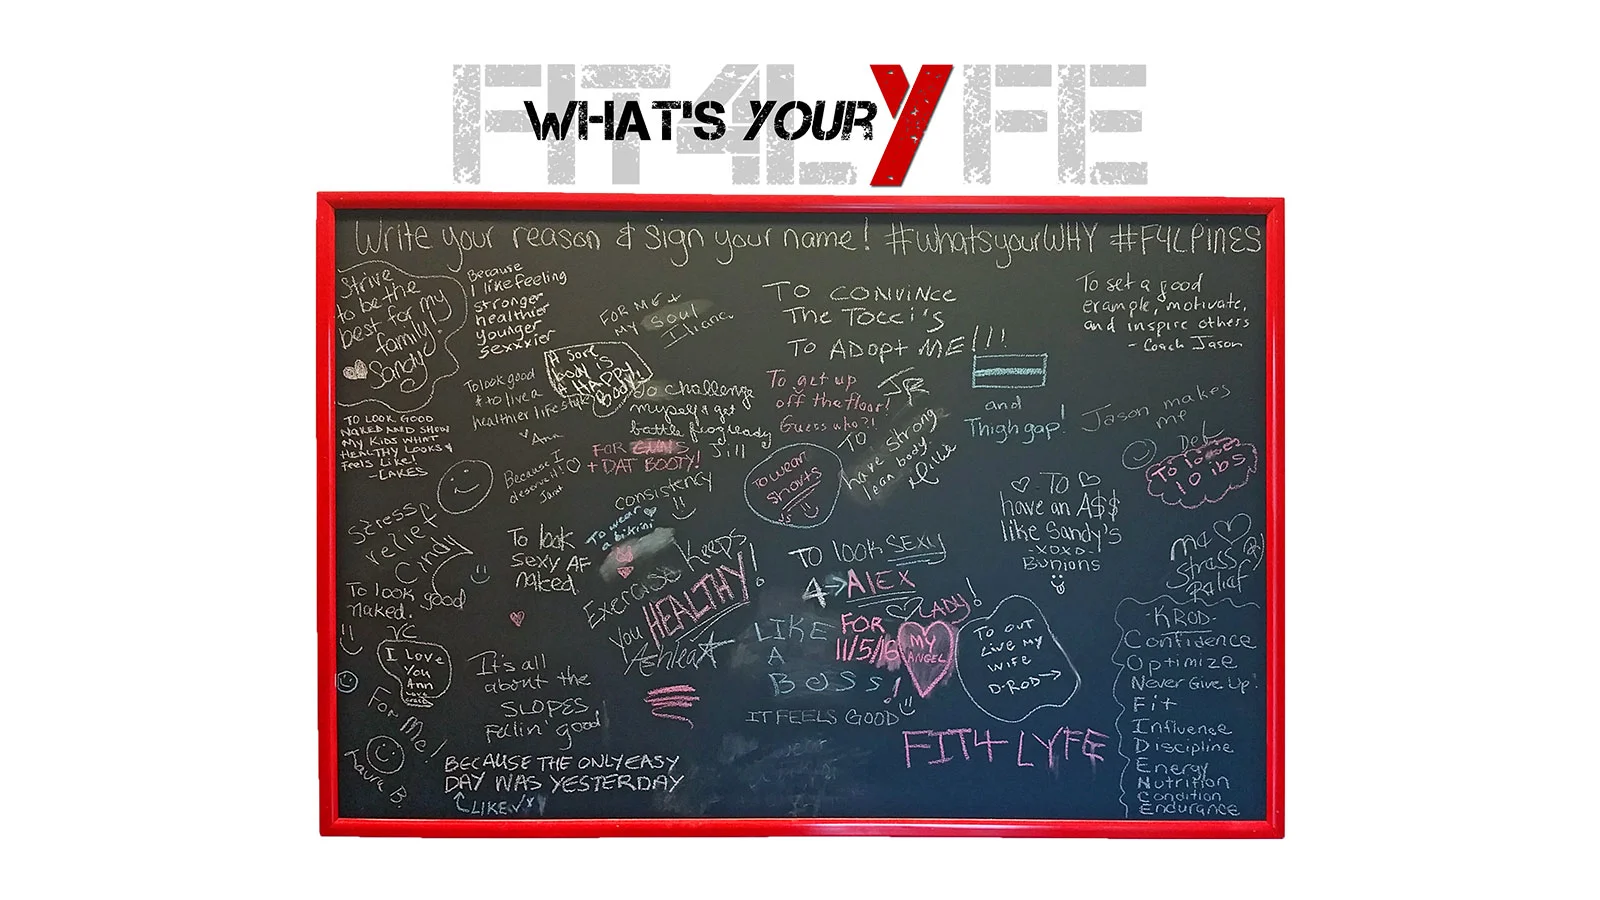 FIT4LYFE
WHAT'S YOUR Y
Write your reason & Sign your name! #whatsyourWHY #F4LPINES
Strive
to be the
best for my
family!
Sandy
Because
I like feeling
stronger
healthier
younger
sexxxier
FOR ME +
MY Soul
Iliana
TO CONVINCE
The Tocci's
TO ADOPT ME!!!
To set a good
example, motivate,
and inspire others
- Coach Jason
To look good
+ to live a
healthier lifestyle
Ann
A Sore
body is
A HAPPY
Body!
To challenge
myself & get
battle frog ready
Jill
To get up
off the floor!
Guess who?!
JR
and
Thigh gap!
Jason makes
me
TO LOOK GOOD
NAKED AND SHOW
MY KIDS WHAT
HEALTHY LOOKS &
FEELS LIKE!
-LAKES
FOR GUNS
+ DAT BOOTY!
Because I
deserve it!
TO
have strong
lean body.
To wear
shorts
To lose
10 lbs
consistency
To wear
a bikini
TO
have an A$$
like Sandy's
-XOXO-
Bunions
Stress
relief
Cindy
To look
sexy AF
naked.
Exercise Keeps
you HEALTHY!
Ashlea
TO look SEXY
4→ALEX
Stress
Relief
To look good
naked.
I Love
You
Ann
LIKE
A
BOSS!
FOR
11/5/16
LADY!
MY
ANGEL
To out
live my
wife
D-ROD→
-KROD-
Confidence
Optimize
Never Give Up.
Fit
Influence
Discipline
Energy
Nutrition
Condition
Endurance
It's all
about the
SLOPES
Feelin' good
For Me!
Laura B.
IT FEELS GOOD
FIT4 LYFE
BECAUSE THE ONLY EASY
DAY WAS YESTERDAY
LIKE